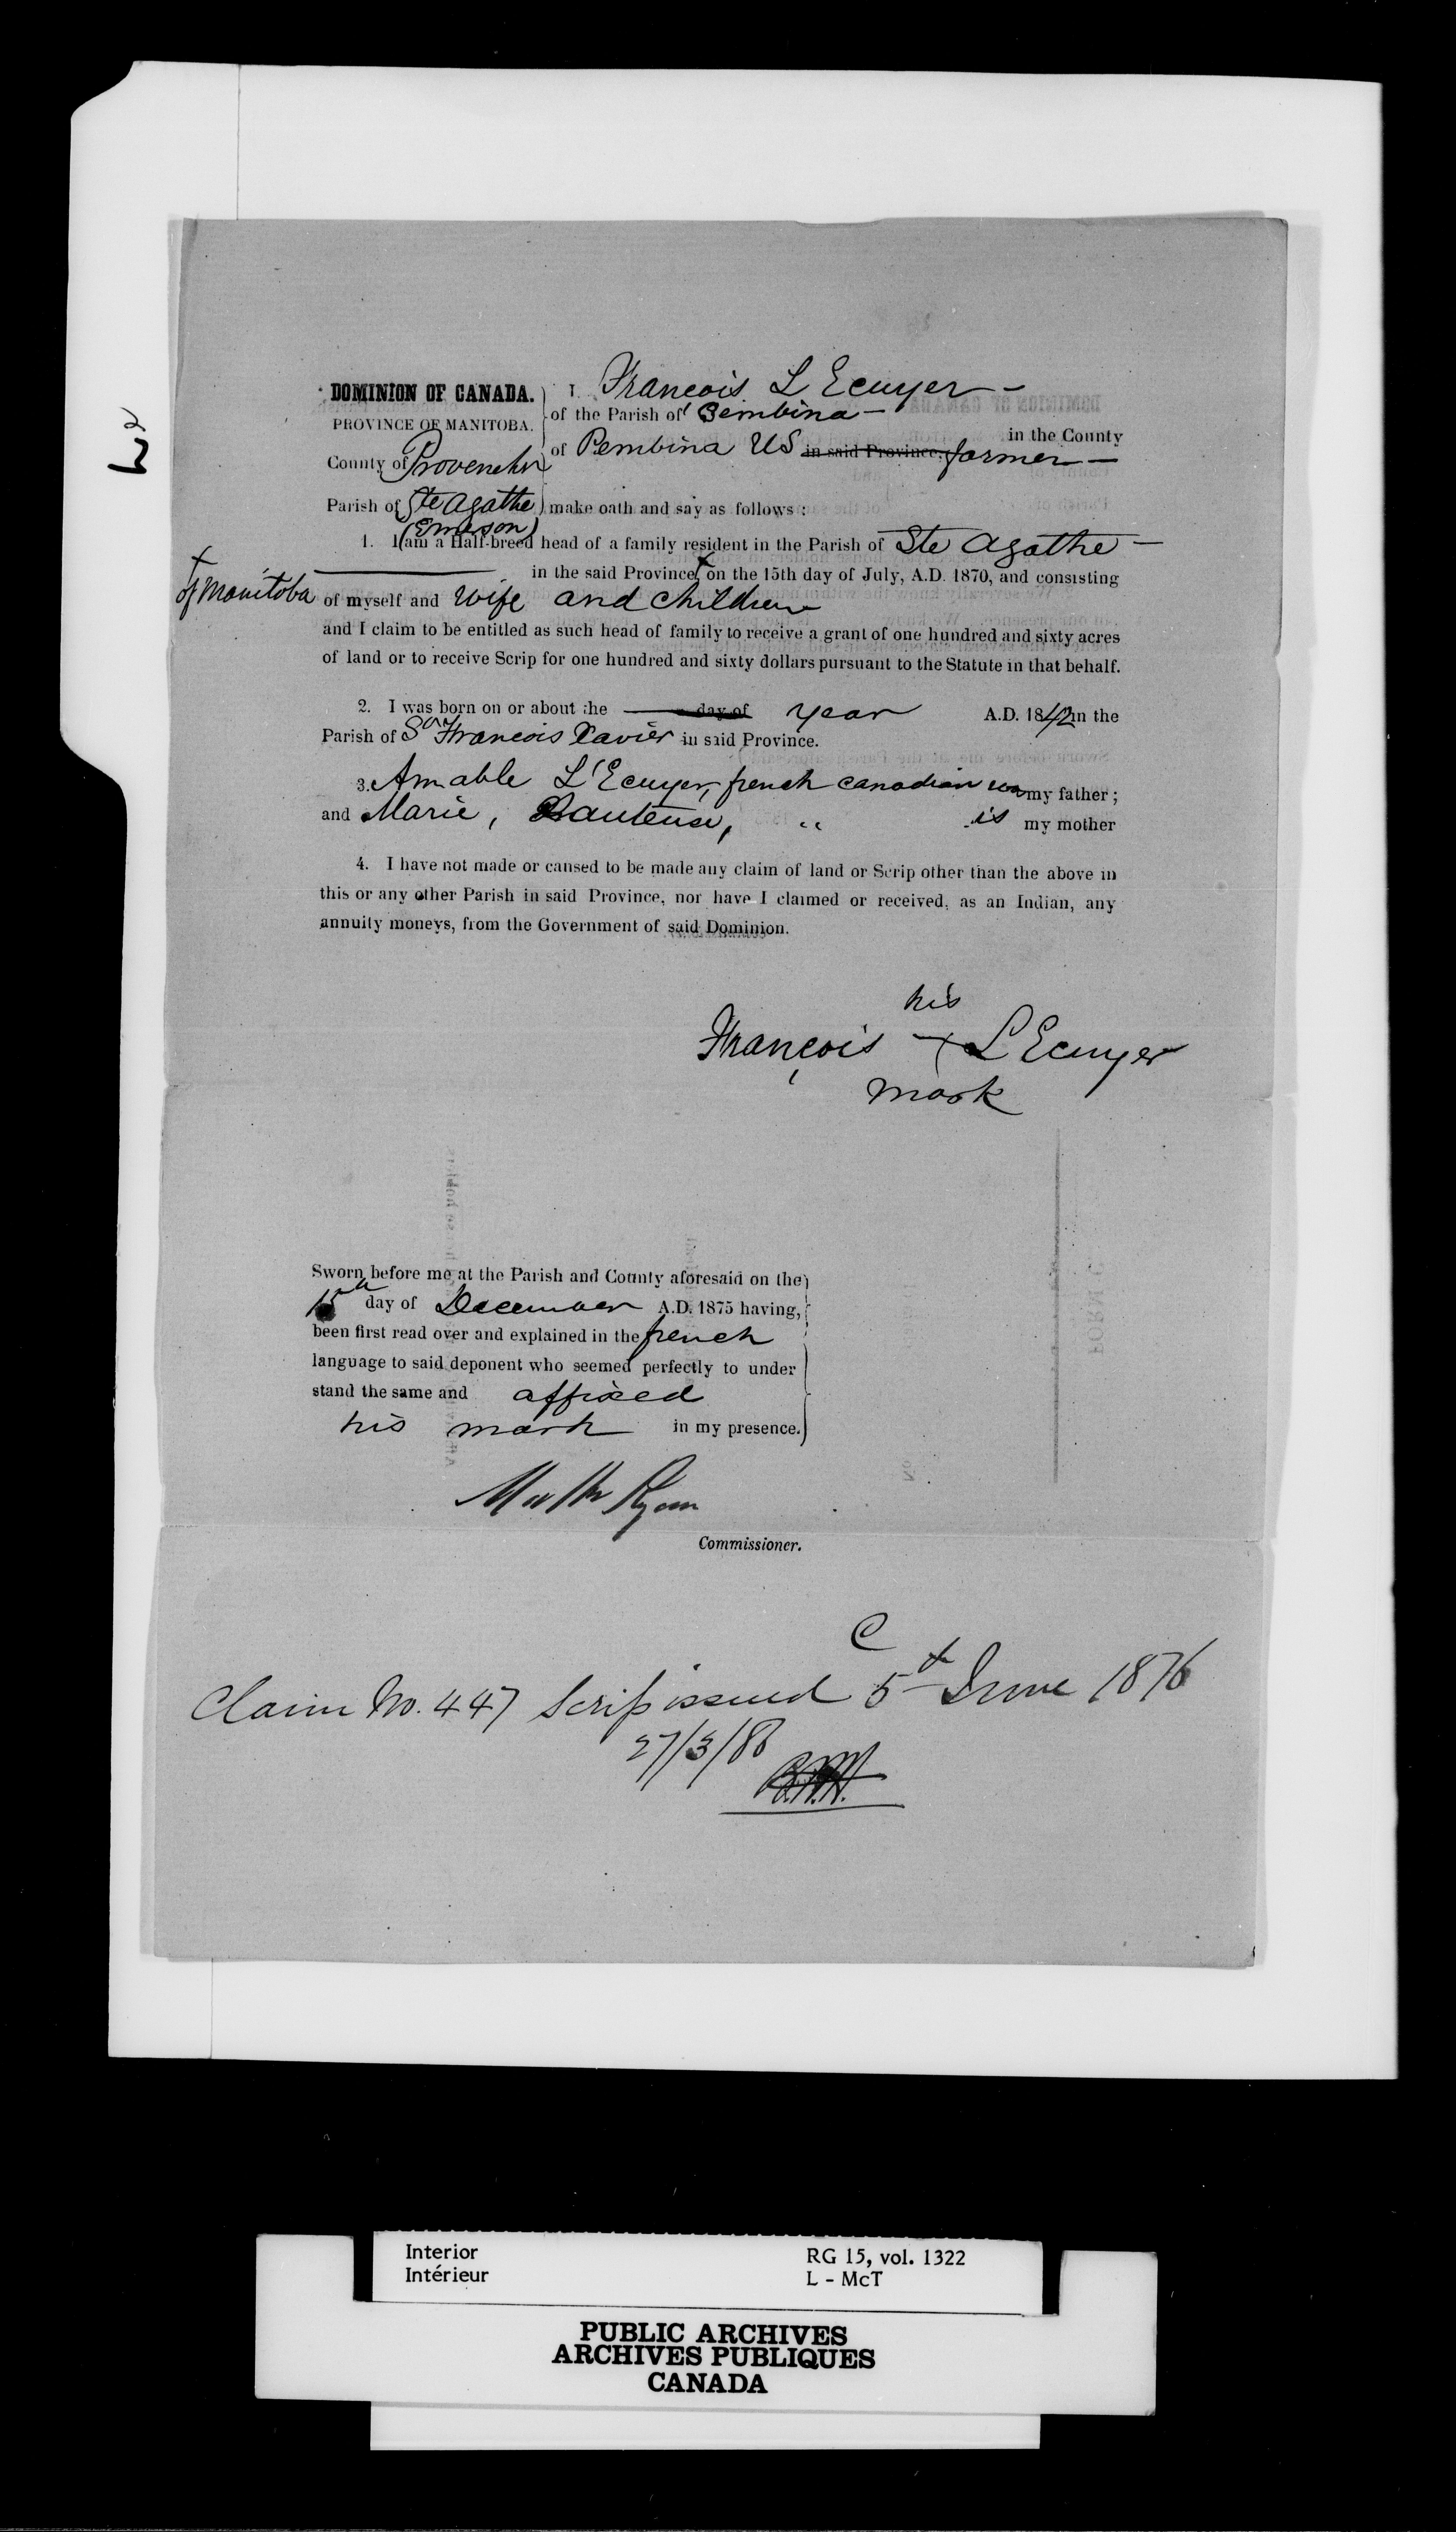 DOMINION OF CANADA.
PROVINCE OF MANITOBA.
County of Provencher
Parish of Ste Agathe
(Emerson)
I Francois L Ecuyer –
of the Parish of Pembina – in the County
of Pembina US in said Province, farmer –
make oath and say as follows :
1. I am a Half-breed head of a family resident in the Parish of Ste Agathe –
in the said Province + on the 15th day of July, A.D. 1870, and consisting
+ of Manitoba
of myself and Wife and children
and I claim to be entitled as such head of family to receive a grant of one hundred and sixty acres
of land or to receive Scrip for one hundred and sixty dollars pursuant to the Statute in that behalf.
2. I was born on or about the day of year A.D. 1842 in the
Parish of St Francois Xavier in said Province.
3. Amable L'Ecuyer, french canadian was my father ;
and Marie, " is my mother
4. I have not made or caused to be made any claim of land or Scrip other than the above in
this or any other Parish in said Province, nor have I claimed or received, as an Indian, any
annuity moneys, from the Government of said Dominion.
his
François + L Ecuyer
mark
Sworn before me at the Parish and County aforesaid on the
15th day of December A.D. 1875 having,
been first read over and explained in the french
language to said deponent who seemed perfectly to under
stand the same and affixed
his mark in my presence.
Matth Ryan
Commissioner.
C
Claim No. 447 Scrip issued 5th June 1876
27/3/86
Interior
Intérieur
RG 15, vol. 1322
L - McT
PUBLIC ARCHIVES
ARCHIVES PUBLIQUES
CANADA